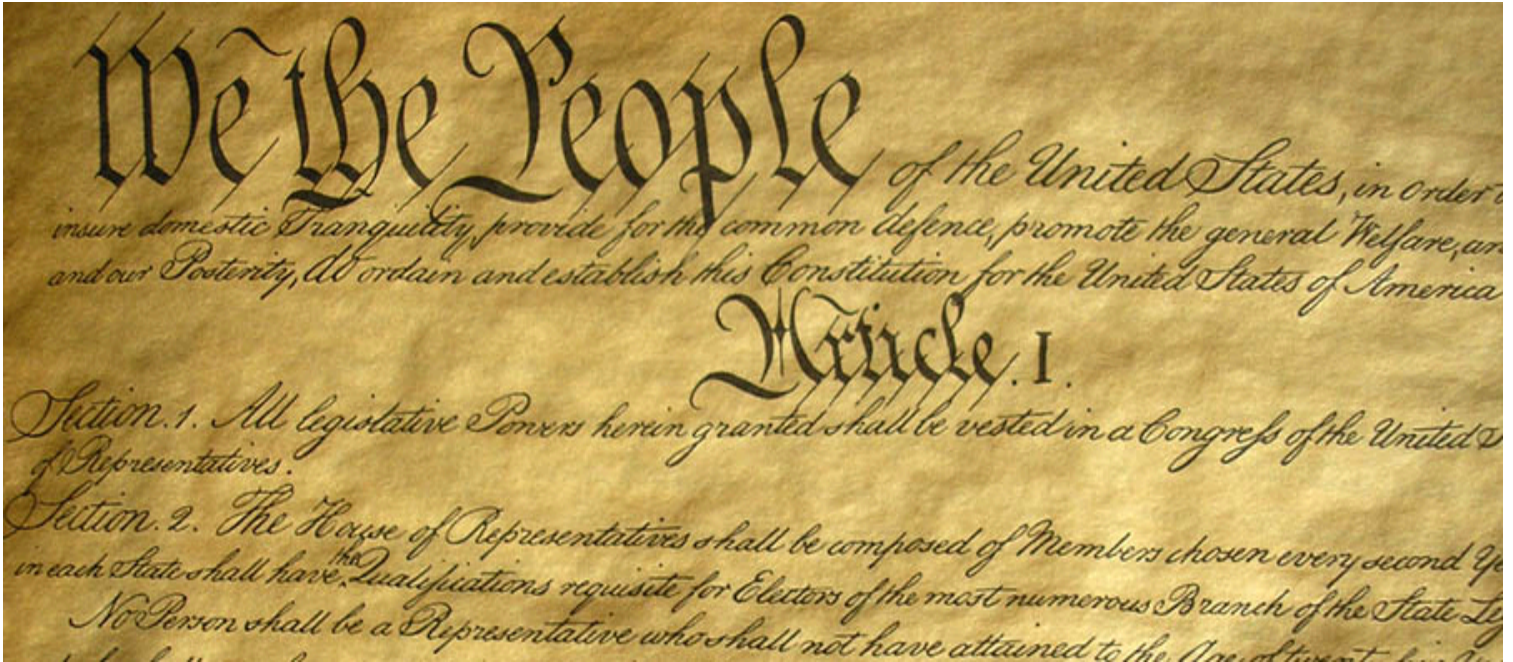 We the People of the United States, in order
insure domestic Tranquility, provide for the common defence, promote the general Welfare, an
and our Posterity, do ordain and establish this Constitution for the United States of America
Article. I.
Section. 1. All legislative Powers herein granted shall be vested in a Congreſs of the United
of Representatives.
Section. 2. The House of Representatives shall be composed of Members chosen every second Ye
in each State shall have the Qualifications requisite for Electors of the most numerous Branch of the State Leg
No Person shall be a Representative who shall not have attained to the Age of twent